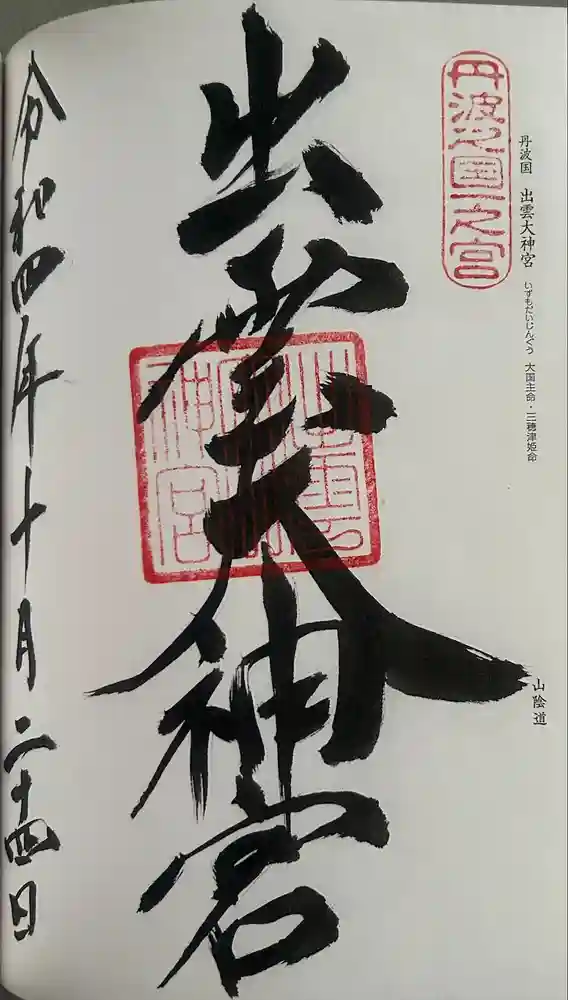 丹波之国一之宮
丹波国 出雲大神宮 いずもだいじんぐう 大国主命・三穂津姫命
山陰道
出雲大神宮
出雲大神宮
令和四年十月二十四日